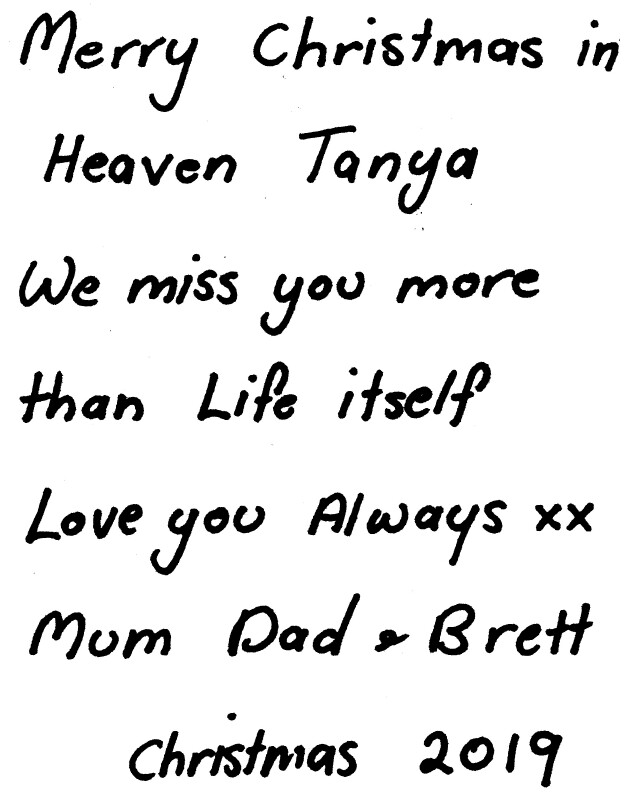 Merry Christmas in
Heaven Tanya
We miss you more
than Life itself
Love you Always xx
Mum Dad & Brett
Christmas 2019